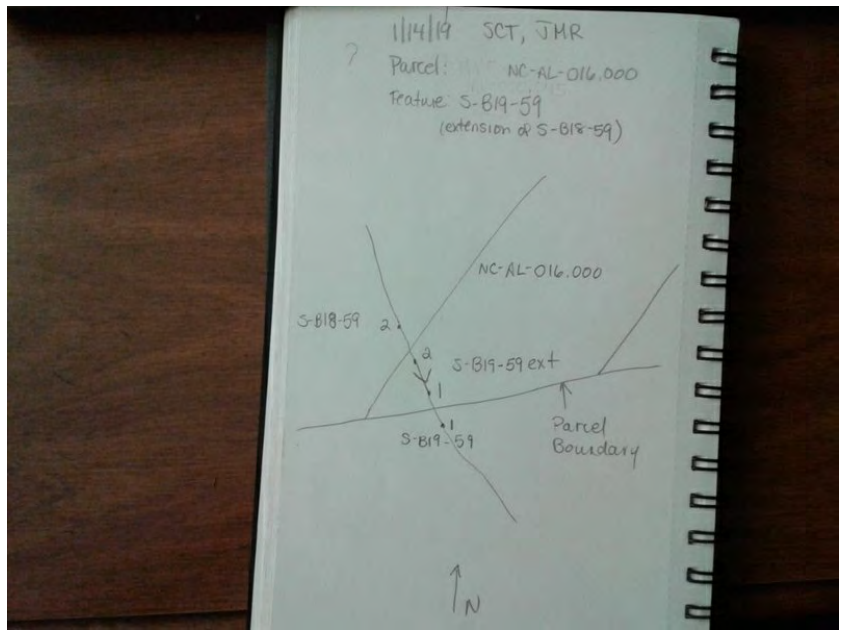 1/14/19 SCT, JMR
?
Parcel: NC-AL-016.000
Feature: S-B19-59
(extension of S-B18-59)
NC-AL-016.000
S-B18-59 2
2
S-B19-59 ext
1
1
S-B19-59
Parcel
Boundary
N